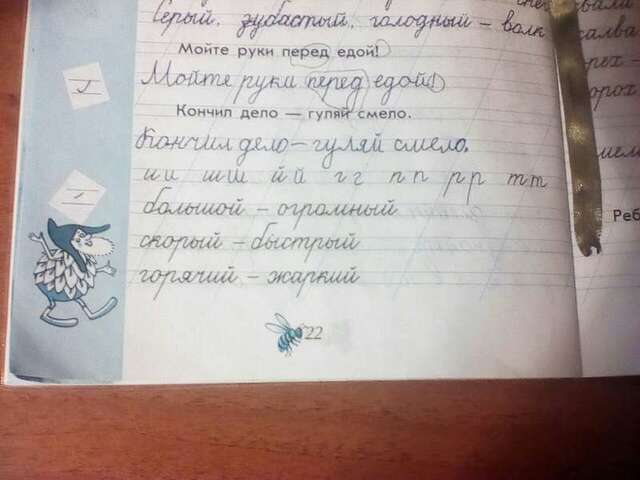 Серый, зубастый, голодный – волк
Мойте руки перед едой!
Мойте руки перед едой!
Кончил дело — гуляй смело.
Кончил дело – гуляй смело.
и и ш ш й й г г п п р р т т
большой – огромный
скорый – быстрый
горячий – жаркий
22
Реб